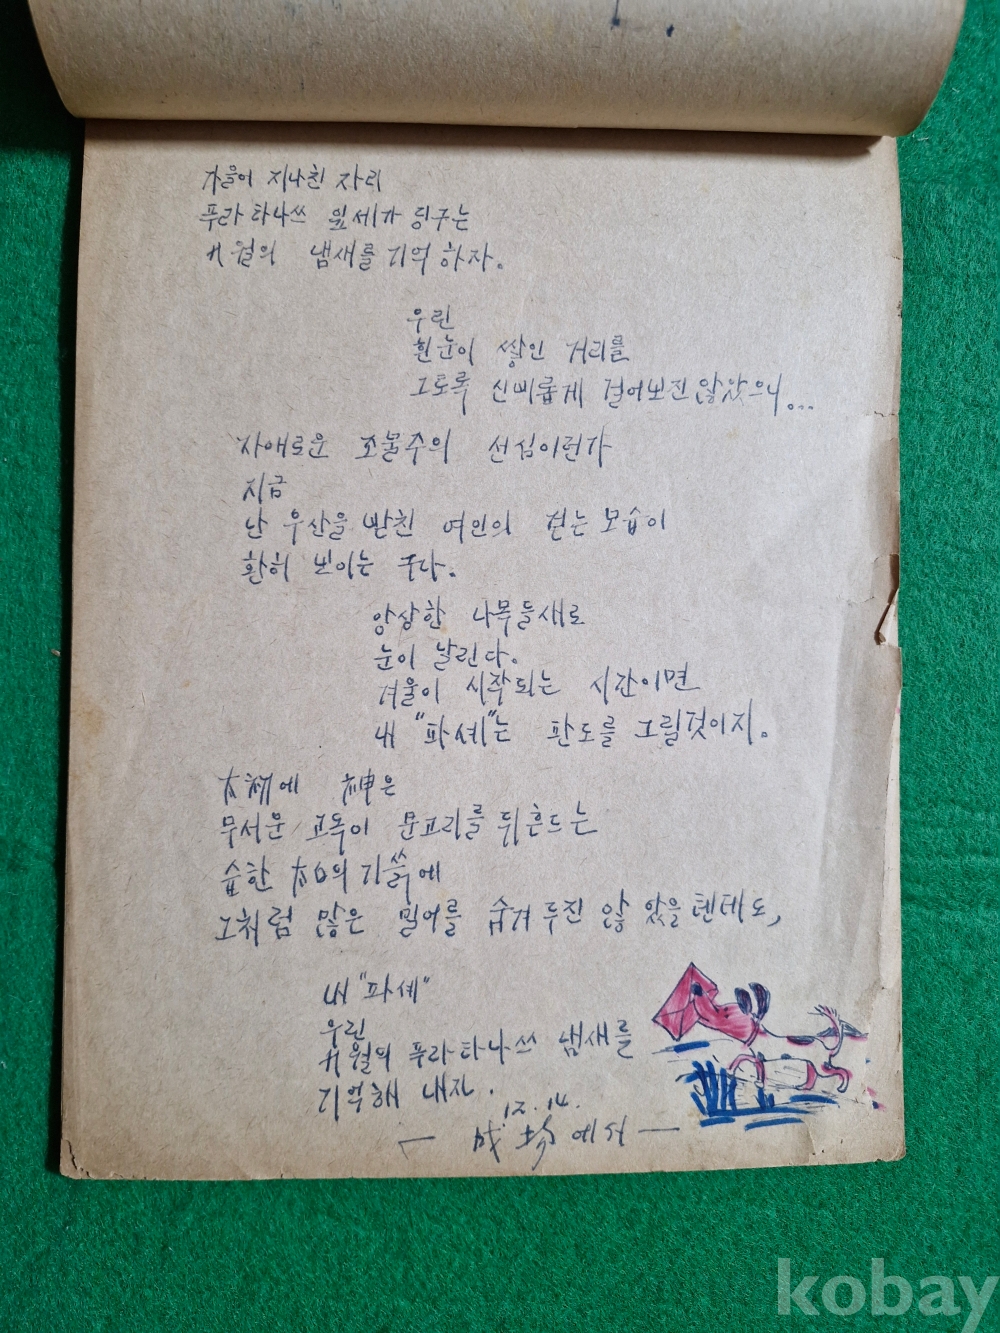 가을이 지나친 자리
푸라타나쓰 잎세가 딩구는
九월의 냄새를 기억하자.
우린
흰눈이 쌓인 거리를
그토록 신비롭게 걸어보진 않았으니...
자애로운 조물주의 선심이런가
지금
난 우산을 받친 여인의 걷는 모습이
환히 보이는 구나.
앙상한 나목들새로
눈이 날린다.
겨울이 시작되는 시간이면
내 "파세"는 판도를 그릴것이지.
太初에 神은
무서운 고독이 문고리를 뒤흔드는
습한 太口의 기슭에
그처럼 많은 밀어를 숨겨 두진 않았을텐데도,
내 "파세"
우린
九월의 푸라타나쓰 냄새를
기억해 내자.
12.14.
— 에서 —
kobay